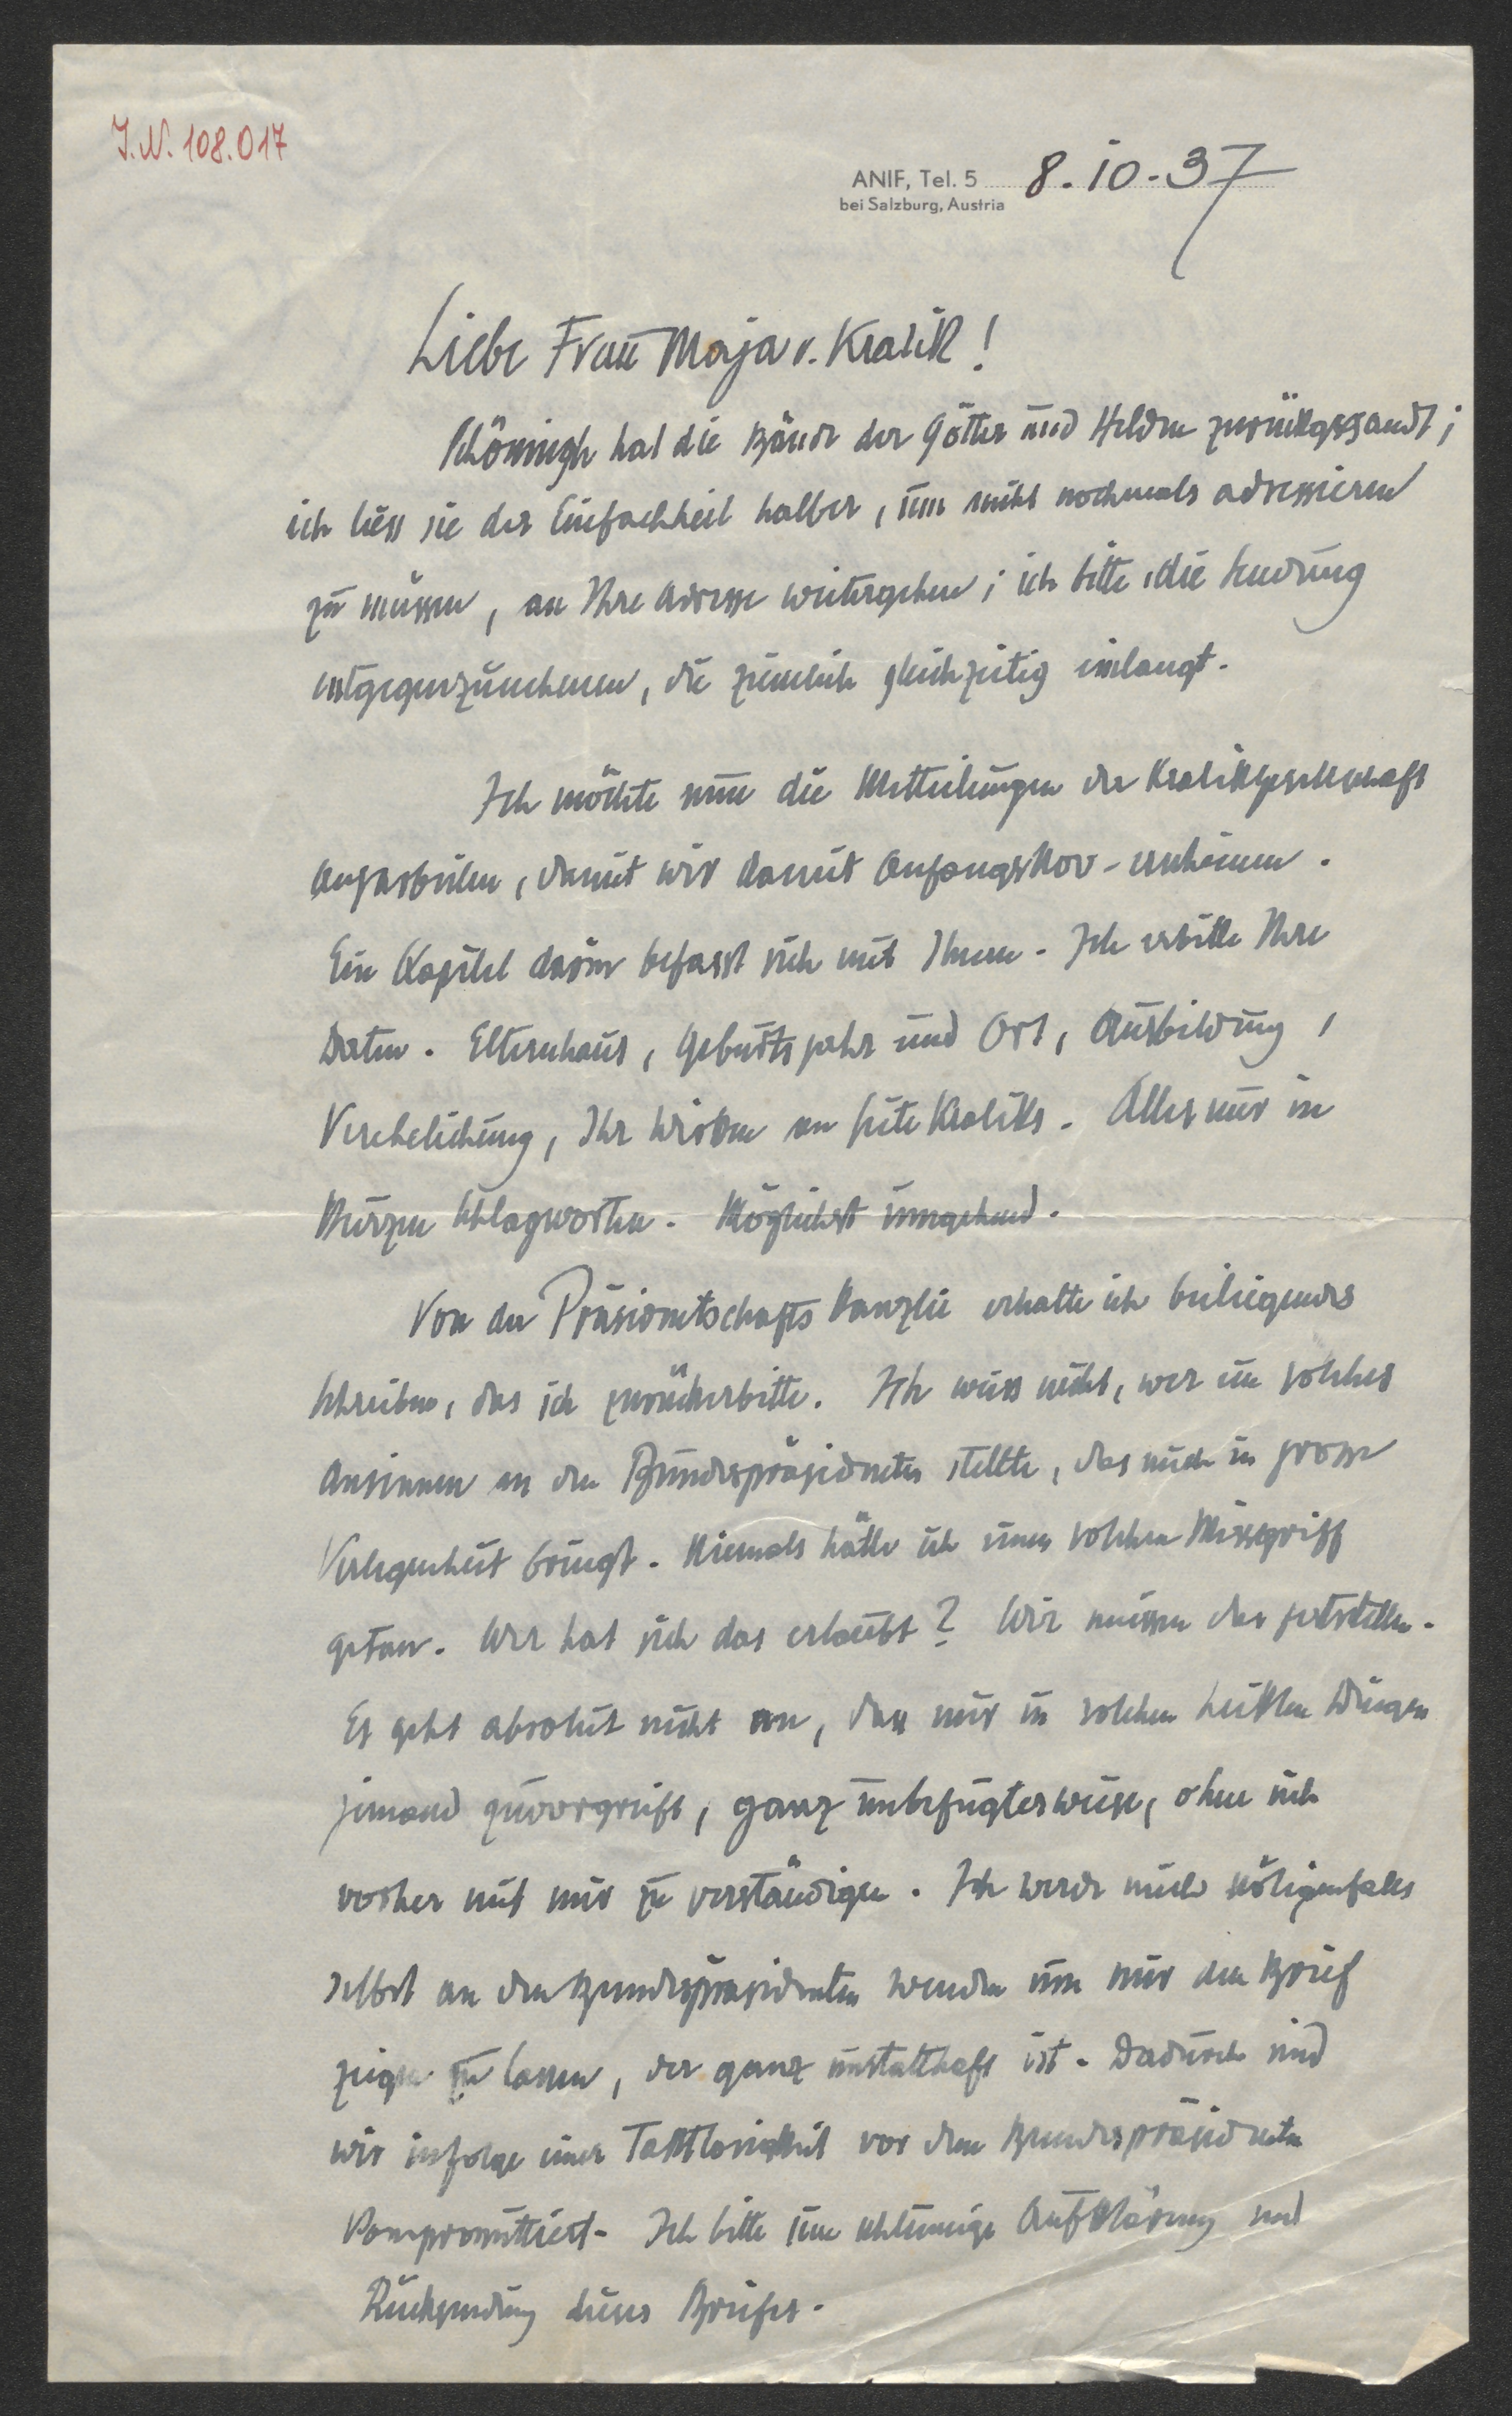 J.N. 108.017
ANIF, Tel. 5 8.10.37
bei Salzburg, Austria
Liebe Frau Maja v. Kralik!
Schöningh hat die Bände der Götter und Helden zurückgesandt;
ich liess sie der Einfachheit halber, um nicht nochmals adressieren
zu müssen, an Ihre Adresse weitergehen; ich bitte, die Sendung
entgegenzunehmen, die ziemlich gleichzeitig einlangt.
Ich möchte nun die Mitteilungen der Kralikgesellschaft
ausarbeiten, damit wir damit Anfangs Nov. erscheinen.
Ein Kapitel darin befasst sich mit Ihnen. Ich erbitte Ihre
Daten. Elternhaus, Geburtsjahr und Ort, Ausbildung,
Verehelichung, Ihr Wirken an Seite Kraliks. Alles nur in
kurzen Schlagworten. Möglichst umgehend.
Von der Präsidentschaftskanzlei erhalte ich beiliegendes
Schreiben, das ich zurückerbitte. Ich weiss nicht, wer ein solches
Ansinnen an den Bundespräsidenten stellte, das mich in grosse
Verlegenheit bringt. Niemals hätte ich einen solchen Missgriff
getan. Wer hat sich das erlaubt? Wir müssen das feststellen.
Es geht absolut nicht an, dass mir in solchen heiklen Dingen
jemand zuvorgreift, ganz unbefugterweise, ohne sich
vorher mit mir zu verständigen. Ich werde mich nötigenfalls
selbst an den Bundespräsidenten wenden um mir den Brief
zeigen zu lassen, der ganz unstatthaft ist. Dadurch sind
wir infolge einer Taktlosigkeit vor dem Bundespräsidenten
kompromittiert. Ich bitte um schleunige Aufklärung und
Rücksendung dieses Briefes.